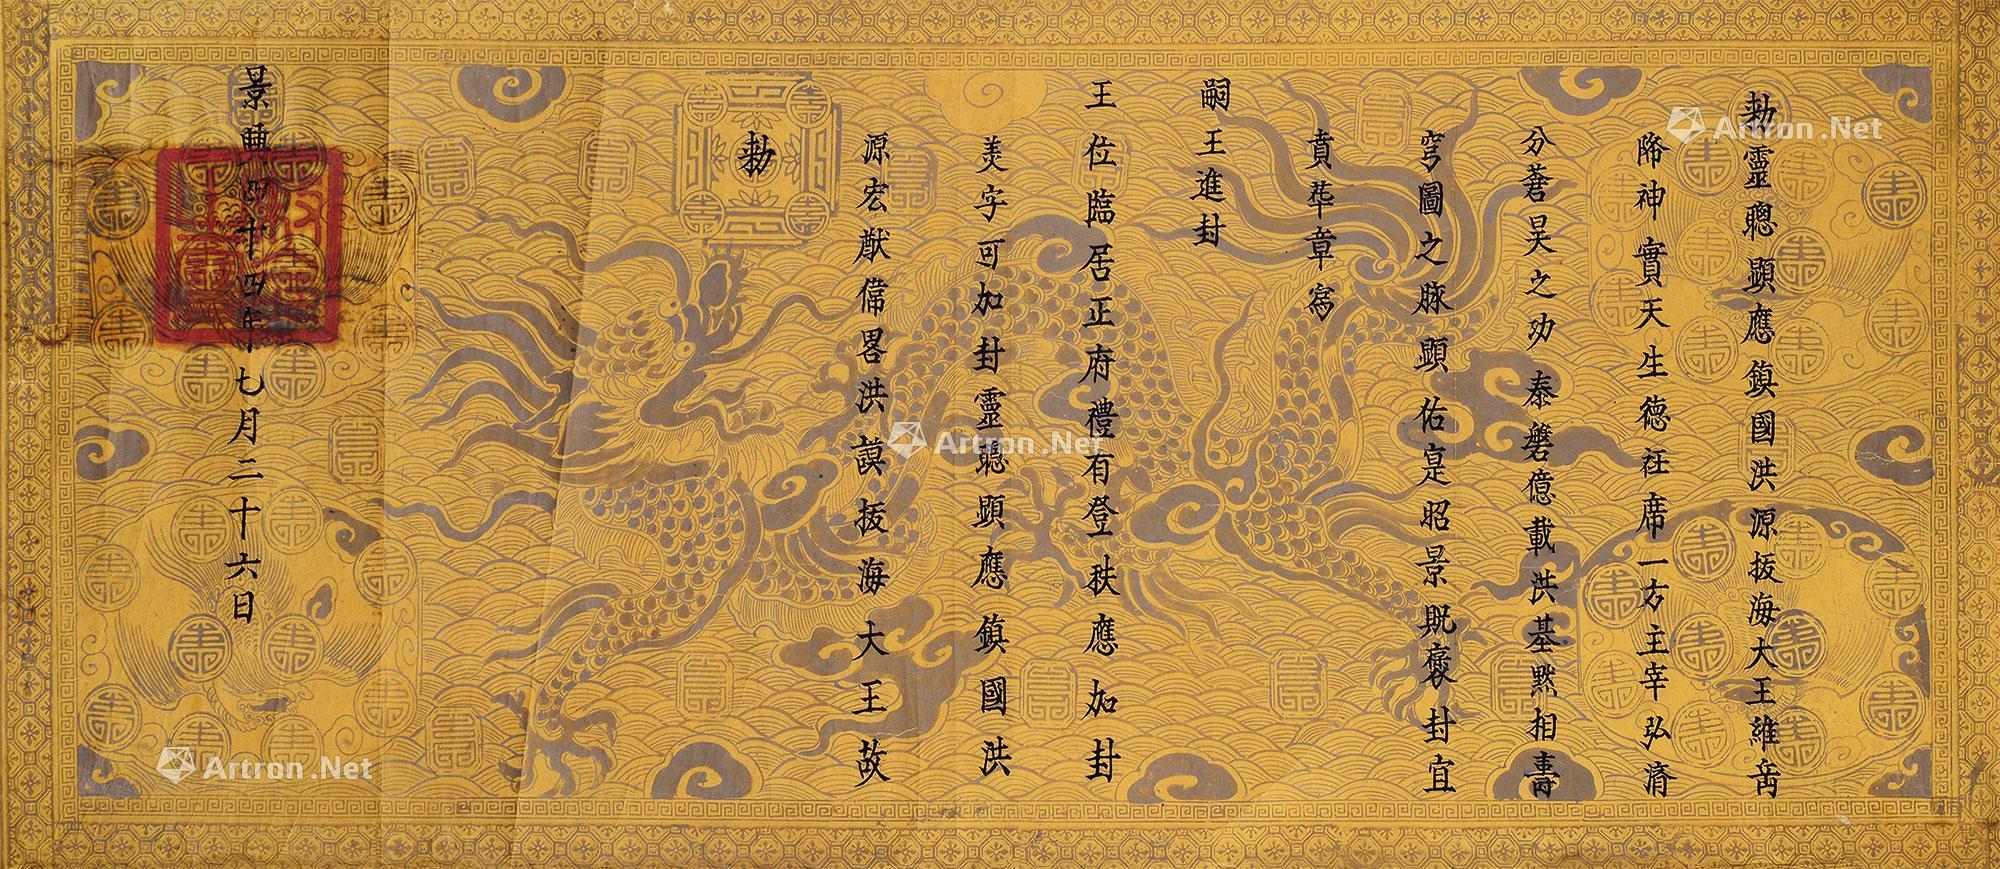 勅靈聰顕應鎮國洪源扳海大王維岳
降神實天生德衽席一方主宰弘濟
分蒼昊之功泰磐億載洪基黙相夀
穹圖之脉顕佑寔昭景貺褒封宜
賁華章為
嗣王進封
王位臨居正府禮有登秩應加封
美字可加封靈聰顕應鎮國洪
源宏猷偉畧洪謨扳海大王故
勅
景興四十四年七月二十六日
Artron.Net
Artron.Net
Artron.Net